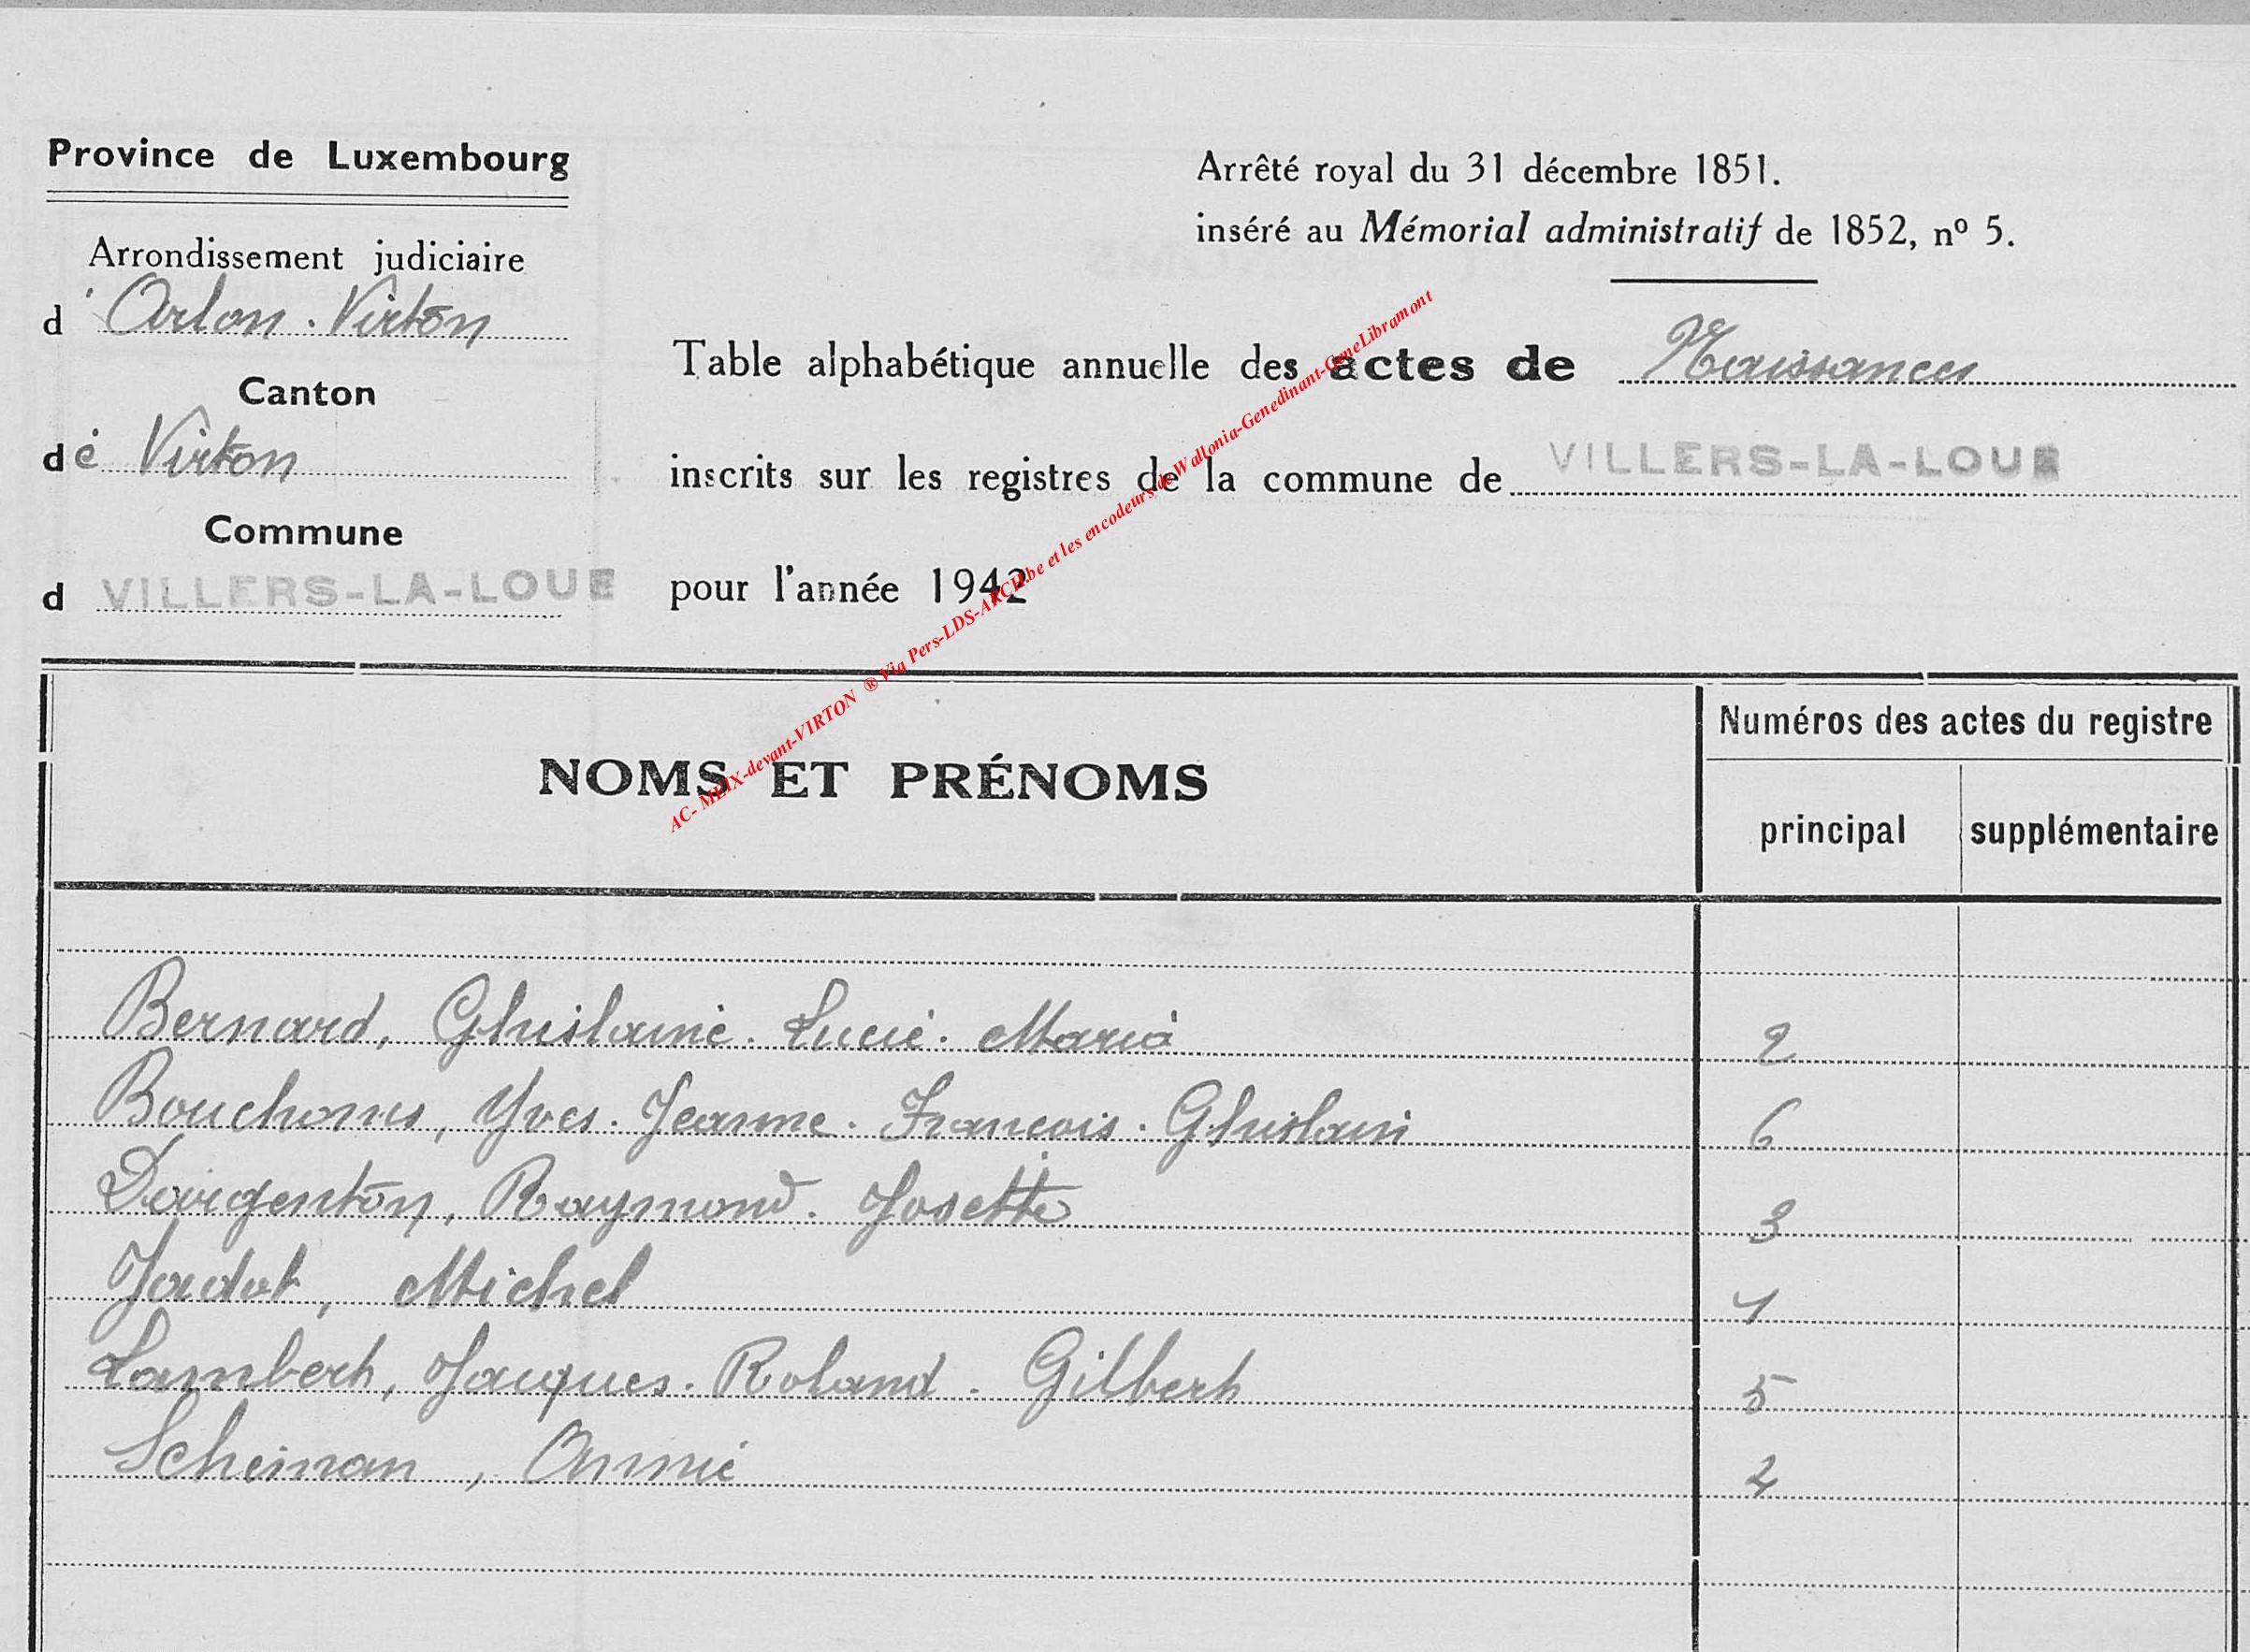 Province de Luxembourg
Arrondissement judiciaire
d'Arlon. Virton
Canton
de Virton
Commune
d VILLERS-LA-LOUE
Arrêté royal du 31 décembre 1851.
inséré au Mémorial administratif de 1852, nº 5.
Table alphabétique annuelle des actes de Naissances
inscrits sur les registres de la commune de VILLERS-LA-LOUE
pour l'année 1942
AC- MEIX-devant-VIRTON ® Via Pers-LDS-ARCH.be et les encodeurs de Wallonia-Genedinant-GeneLibramont
NOMS ET PRÉNOMS
Numéros des actes du registre
principal supplémentaire
Bernard, Ghislaine. Lucie. Maria 2
Bouchoms, Yves. Jeanne. François. Ghislain 6
Dargenton, Raymond. Josette 3
Jadot, Michel
Lambert, Jacques. Roland. Gilbert 5
Scheinan, Annie